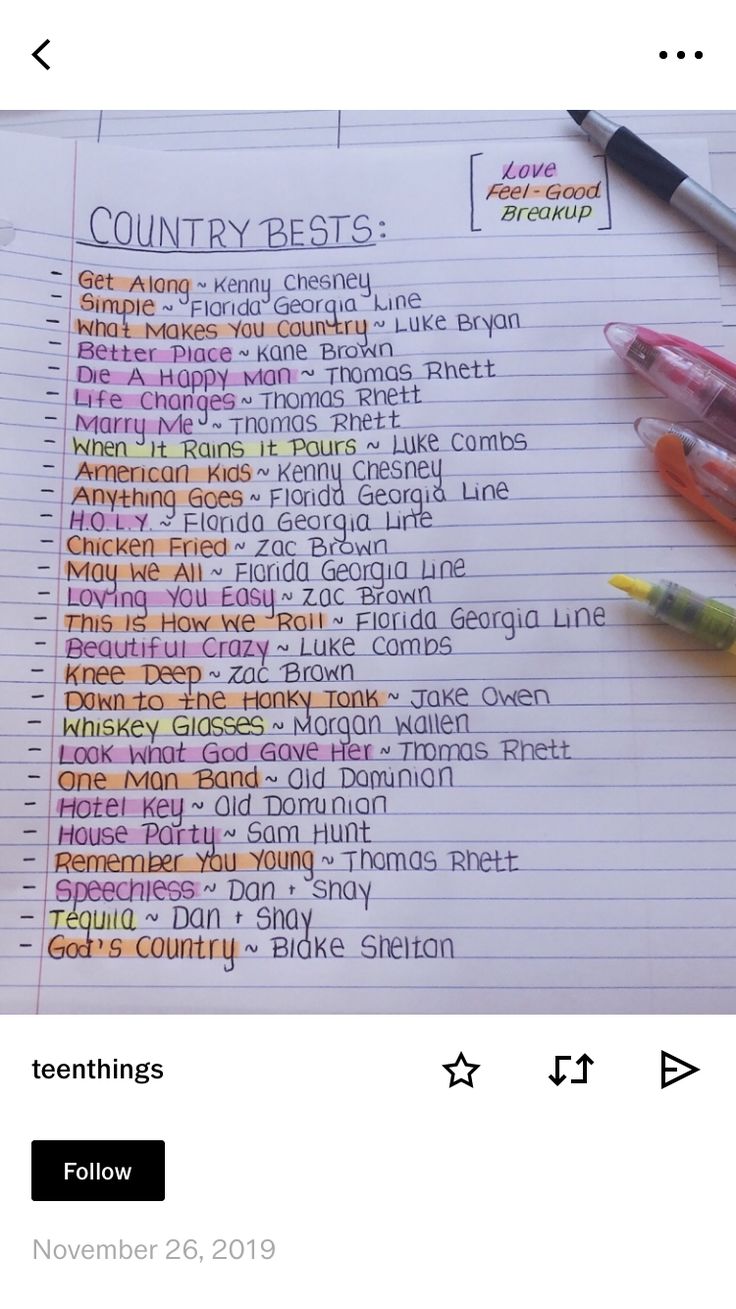 Love
Feel-Good
Breakup
COUNTRY BESTS:
- Get Along ~ Kenny Chesney
- Simple ~ Florida Georgia Line
- What Makes You Country ~ Luke Bryan
- Better Place ~ Kane Brown
- Die A Happy Man ~ Thomas Rhett
- Life Changes ~ Thomas Rhett
- Marry Me ~ Thomas Rhett
- When It Rains it Pours ~ Luke Combs
- American Kids ~ Kenny Chesney
- Anything Goes ~ Florida Georgia Line
- H.O.L.Y. ~ Florida Georgia Line
- Chicken Fried ~ Zac Brown
- May We All ~ Florida Georgia Line
- Loving You Easy ~ Zac Brown
- This Is How We Roll ~ Florida Georgia Line
- Beautiful Crazy ~ Luke Combs
- Knee Deep ~ Zac Brown
- Down to the Honky Tonk ~ Jake Owen
- Whiskey Glasses ~ Morgan Wallen
- Look What God Gave Her ~ Thomas Rhett
- One Man Band ~ Old Dominion
- Hotel Key ~ Old Dominion
- House Party ~ Sam Hunt
- Remember You Young ~ Thomas Rhett
- Speechless ~ Dan + Shay
- Tequila ~ Dan + Shay
- God's Country ~ Blake Shelton
teenthings
Follow
November 26, 2019